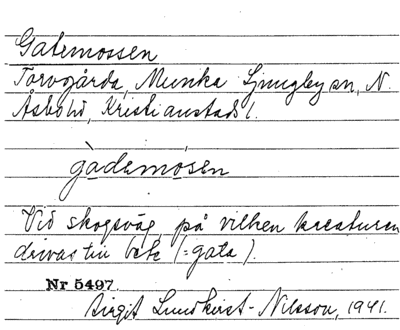 Gatemossen
Torvgårda, Munka Ljungby sn, N.
Åsbo hd, Kristianstads l.
gàdemósen
Vid skogsväg, på vilken kreaturen
drivas till bete (= gata).
Nr 5497.
Birgit Lundkvist-Nilsson, 1941.